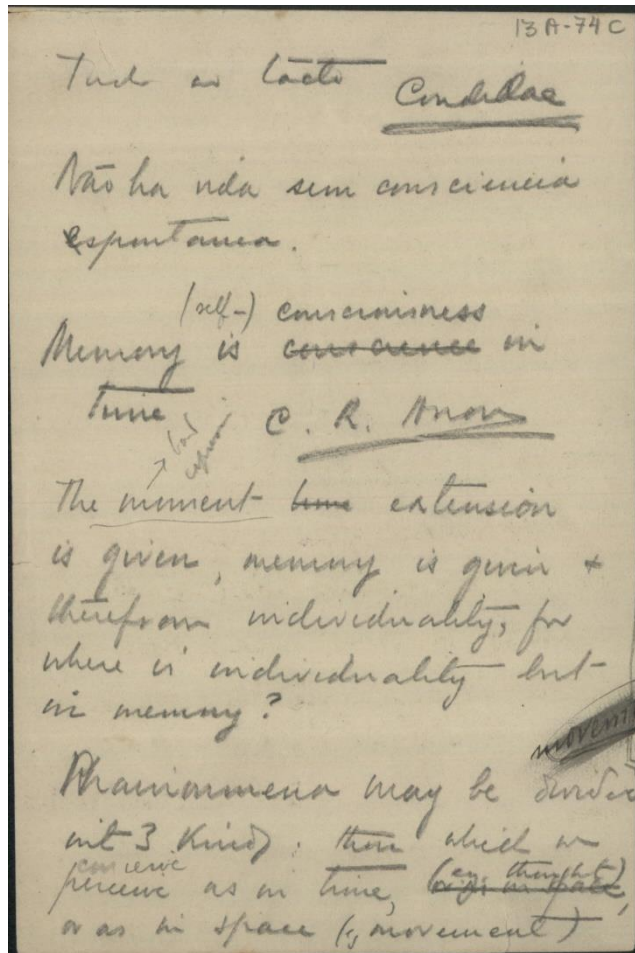 13A-74C
Tudo ao tacto
Condillac
Não ha vida sem consciencia
espontanea.
(self-) consciousness
Memory is conscience in
time
C. R. Anon
→ bad
expression
The moment time extension
is given, memory is given &
therefrom individuality, for
where is individuality but
in memory?
movem
Phainomena may be divided
into 3 kinds: those which we
conceive
perceive as in time, (eg. thought)
or as in space (eg movement)